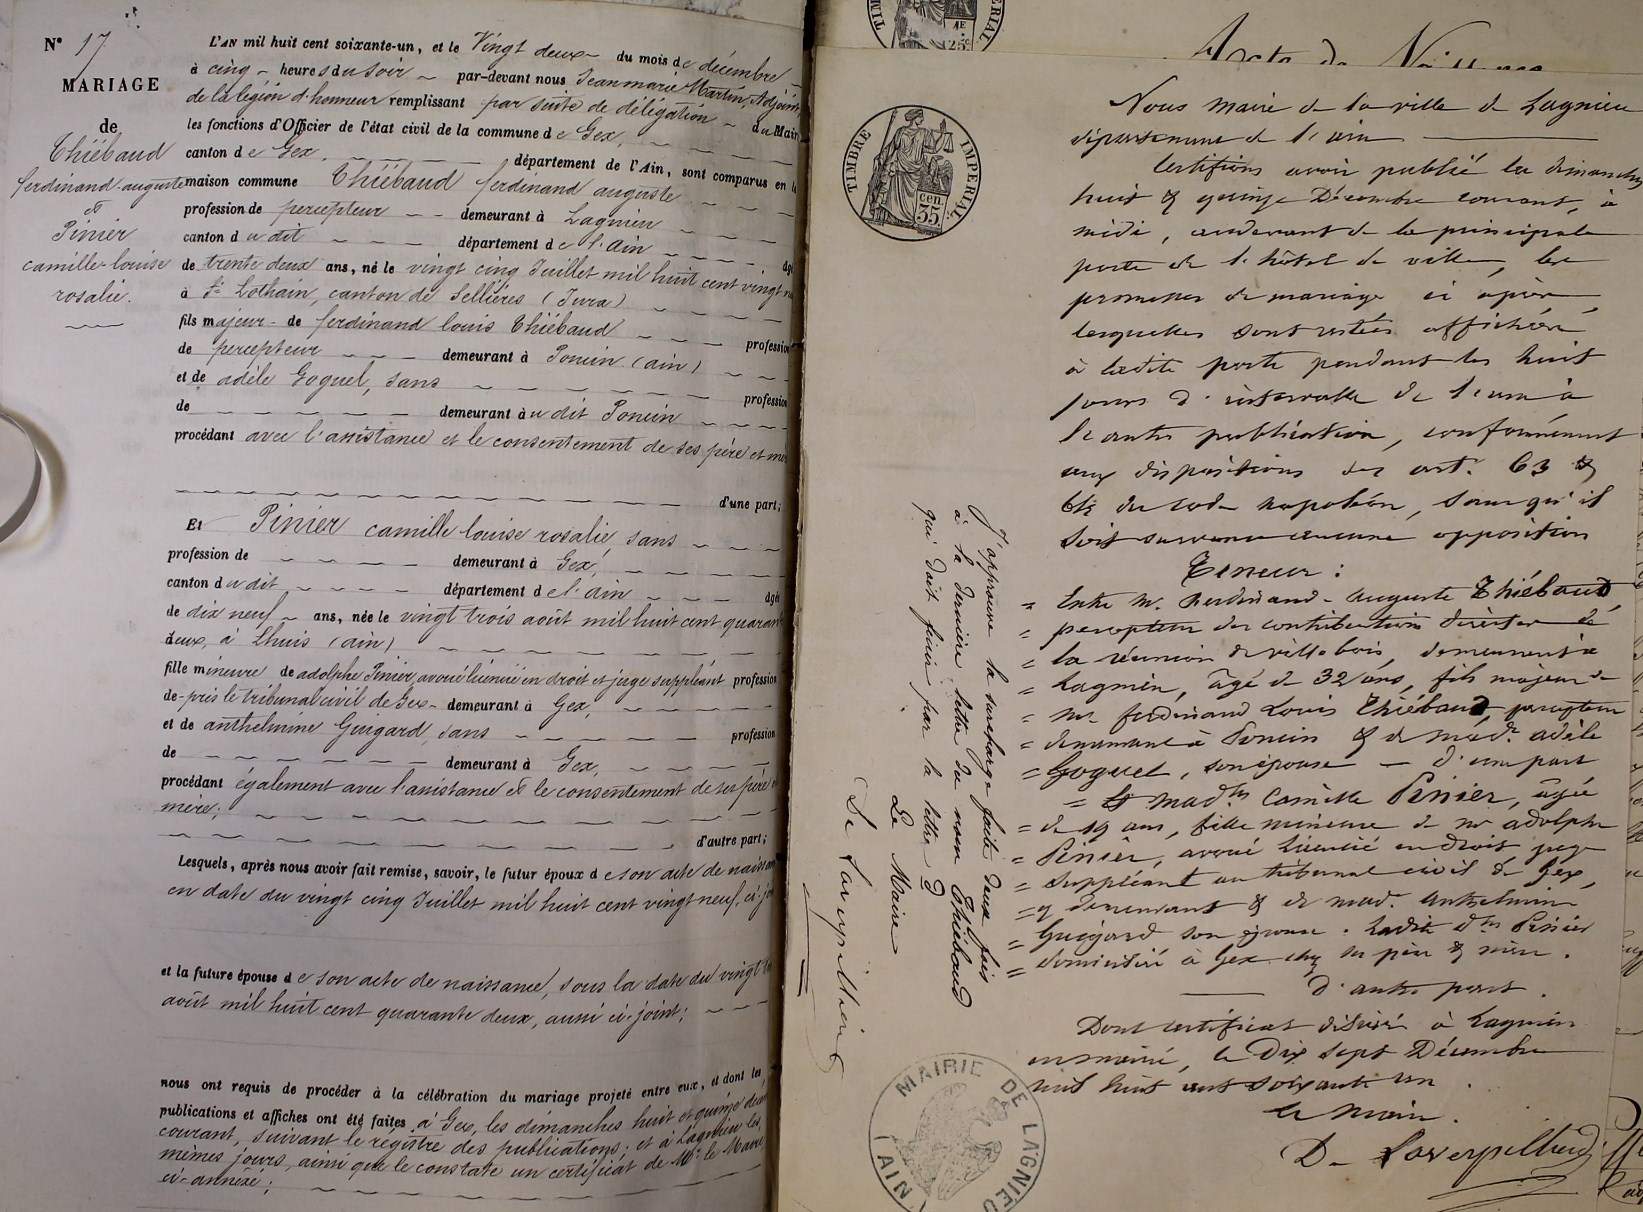 N° 17
MARIAGE
de
Thiébaud
ferdinand-auguste
et
Pinier
camille-louise
rosalie.
L'AN mil huit cent soixante-un, et le Vingt deux du mois de décembre
à cinq heures du soir par-devant nous Jean marie Martin, Adjoint,
de la légion d'honneur remplissant par suite de délégation du Maire
les fonctions d'Officier de l'état civil de la commune de Gex,
canton de Gex, département de l'Ain, sont comparus en la
maison commune Thiébaud ferdinand auguste
profession de percepteur demeurant à Lagnieu
canton du dit département de l'Ain âgé
de trente deux ans, né le vingt cinq Juillet mil huit cent vingt
à St Lothain, canton de Sellières (Jura)
fils majeur de ferdinand louis Thiébaud profession
de percepteur demeurant à Poncin (ain)
et de adèle Goguel, sans profession
de demeurant au dit Poncin
procédant avec l'assistance et le consentement de ses père et
d'une part;
Et Pinier camille louise rosalie, sans
profession de demeurant à Gex,
canton du dit département de l'ain âgée
de dix neuf ans, née le vingt trois août mil huit cent quaran
deux, à Lhuis (ain)
fille mineure de adolphe Pinier, avoué licencié en droit et juge suppléant profession
de près le tribunal civil de Gex demeurant à Gex,
et de anthelmine Guigard, sans profession
de demeurant à Gex,
procédant également avec l'assistance et le consentement de ses père
mère;
d'autre part;
Lesquels, après nous avoir fait remise, savoir, le futur époux de son acte de naissan
en date du vingt cinq Juillet mil huit cent vingt neuf, ci-j
et la future épouse de son acte de naissance, sous la date du vingt
août mil huit cent quarante deux, aussi ci-joint;
nous ont requis de procéder à la célébration du mariage projeté entre eux, et dont les
publications et affiches ont été faites à Gex, les dimanches huit et quinze
courant, suivant le registre des publications; et à Lagnieu les
mêmes jours, ainsi que le constate un certificat de Mr le Maire
ci-annexé;
TIMBRE IMPERIAL
25c
Acte de
TIMBRE IMPERIAL.
cen. 35
Nous Maire de la ville de Lagnieu
département de l'ain
Certifions avoir publié les dimanches
huit & quinze Décembre courant, à
midi, audevant de la principale
porte de l'hôtel de ville, les
promesses de mariage ci après,
lesquelles sont restées affichées
à ladite porte pendant les huit
jours d'intervalle de l'une à
l'autre publication, conformément
aux dispositions des art. 63 &
64 du code napoléon, sans qu'il
soit survenu aucune opposition
Teneur:
= Entre Mr. Ferdinand-Auguste Thiébaud,
= percepteur des contributions directes de
= la réunion de villebois, demeurant à
= Lagnieu, âgé de 32 ans, fils majeur de
= Mr ferdinand Louis Thiébaud, percepteur
= demeurant à Poncin & de made. adèle
= Goguel, son épouse — d'une part
= & madlle Camille Pinier, âgée
= de 19 ans, fille mineure de mr adolphe
= Pinier, avoué licencié en droit, juge
= suppléant au tribunal civil de Gex,
= y demeurant & de mad. anthelmine
= Guigard son épouse. Ladite dlle Pinier
= domiciliée à Gex chez ses père & mère.
d'autre part.
Dont certificat délivré à Lagnieu
en mairie, le Dix sept Décembre
mil huit cent soixante un.
Le Maire.
De Laverpillière
J'approuve la surcharge faite deux fois
à la dernière lettre du nom Thiébaud
qui doit finir par la lettre D
Le Maire
De Laverpillière
MAIRIE DE LAGNIEU
(AIN)